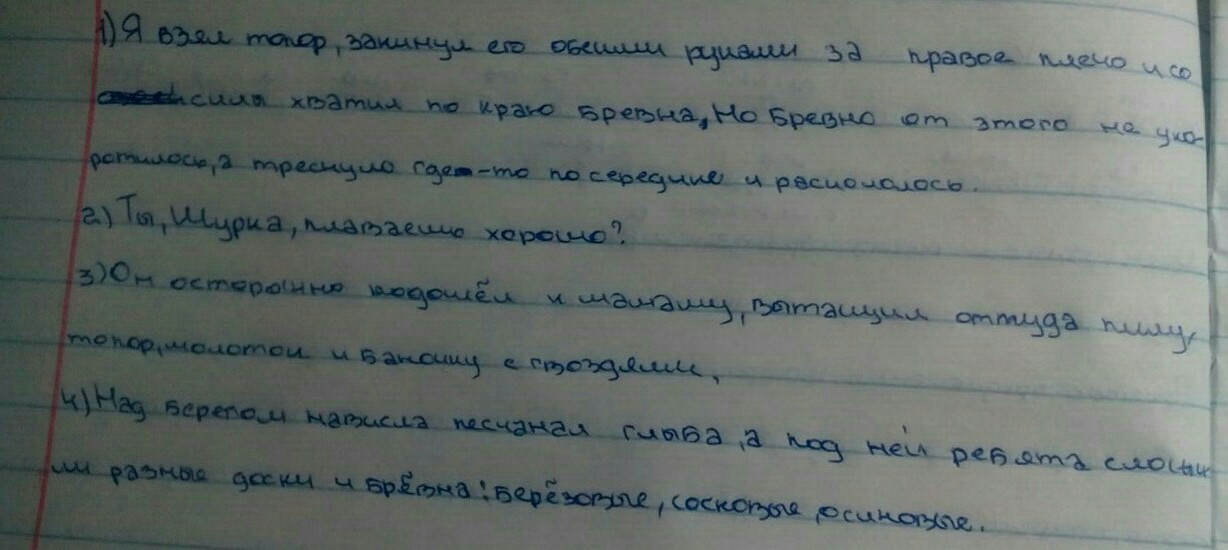 1) Я взял топор, закинул его обеими руками за правое плечо и со
силы хватил по краю бревна, Но бревно от этого не уко-
ротилось, а треснуло где-то посередине и раскололось.
2) Ты, Шурка, плаваешь хорошо?
3) Он осторожно подошёл к шалашу, вытащил оттуда пилу,
топор, молоток и баночку с гвоздями.
4) Над берегом нависла песчаная глыба, а под ней ребята сложи
ли разные доски и брёвна: берёзовые, сосновые, осиновые.